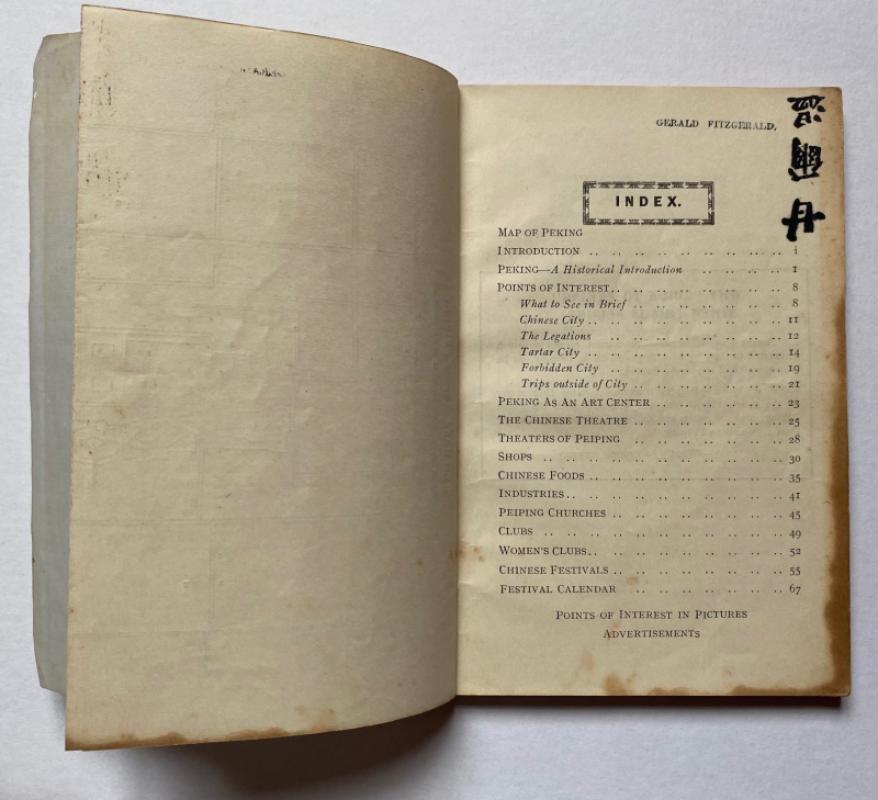 GERALD FITZGERALD,
INDEX.
MAP OF PEKING
INTRODUCTION .. .. .. .. .. .. .. .. .. i
PEKING—A Historical Introduction .. .. .. .. 1
POINTS OF INTEREST .. .. .. .. .. .. .. .. 8
What to See in Brief .. .. .. .. .. .. .. 8
Chinese City .. .. .. .. .. .. .. .. .. 11
The Legations .. .. .. .. .. .. .. .. 12
Tartar City .. .. .. .. .. .. .. .. .. 14
Forbidden City .. .. .. .. .. .. .. .. 19
Trips outside of City .. .. .. .. .. .. .. 21
PEKING AS AN ART CENTER .. .. .. .. .. .. 23
THE CHINESE THEATRE .. .. .. .. .. .. .. 25
THEATERS OF PEIPING .. .. .. .. .. .. .. 28
SHOPS .. .. .. .. .. .. .. .. .. .. .. 30
CHINESE FOODS .. .. .. .. .. .. .. .. .. 35
INDUSTRIES .. .. .. .. .. .. .. .. .. .. 41
PEIPING CHURCHES .. .. .. .. .. .. .. .. 45
CLUBS .. .. .. .. .. .. .. .. .. .. .. 49
WOMEN'S CLUBS .. .. .. .. .. .. .. .. .. 52
CHINESE FESTIVALS .. .. .. .. .. .. .. .. 55
FESTIVAL CALENDAR .. .. .. .. .. .. .. 67
POINTS OF INTEREST IN PICTURES
ADVERTISEMENTS